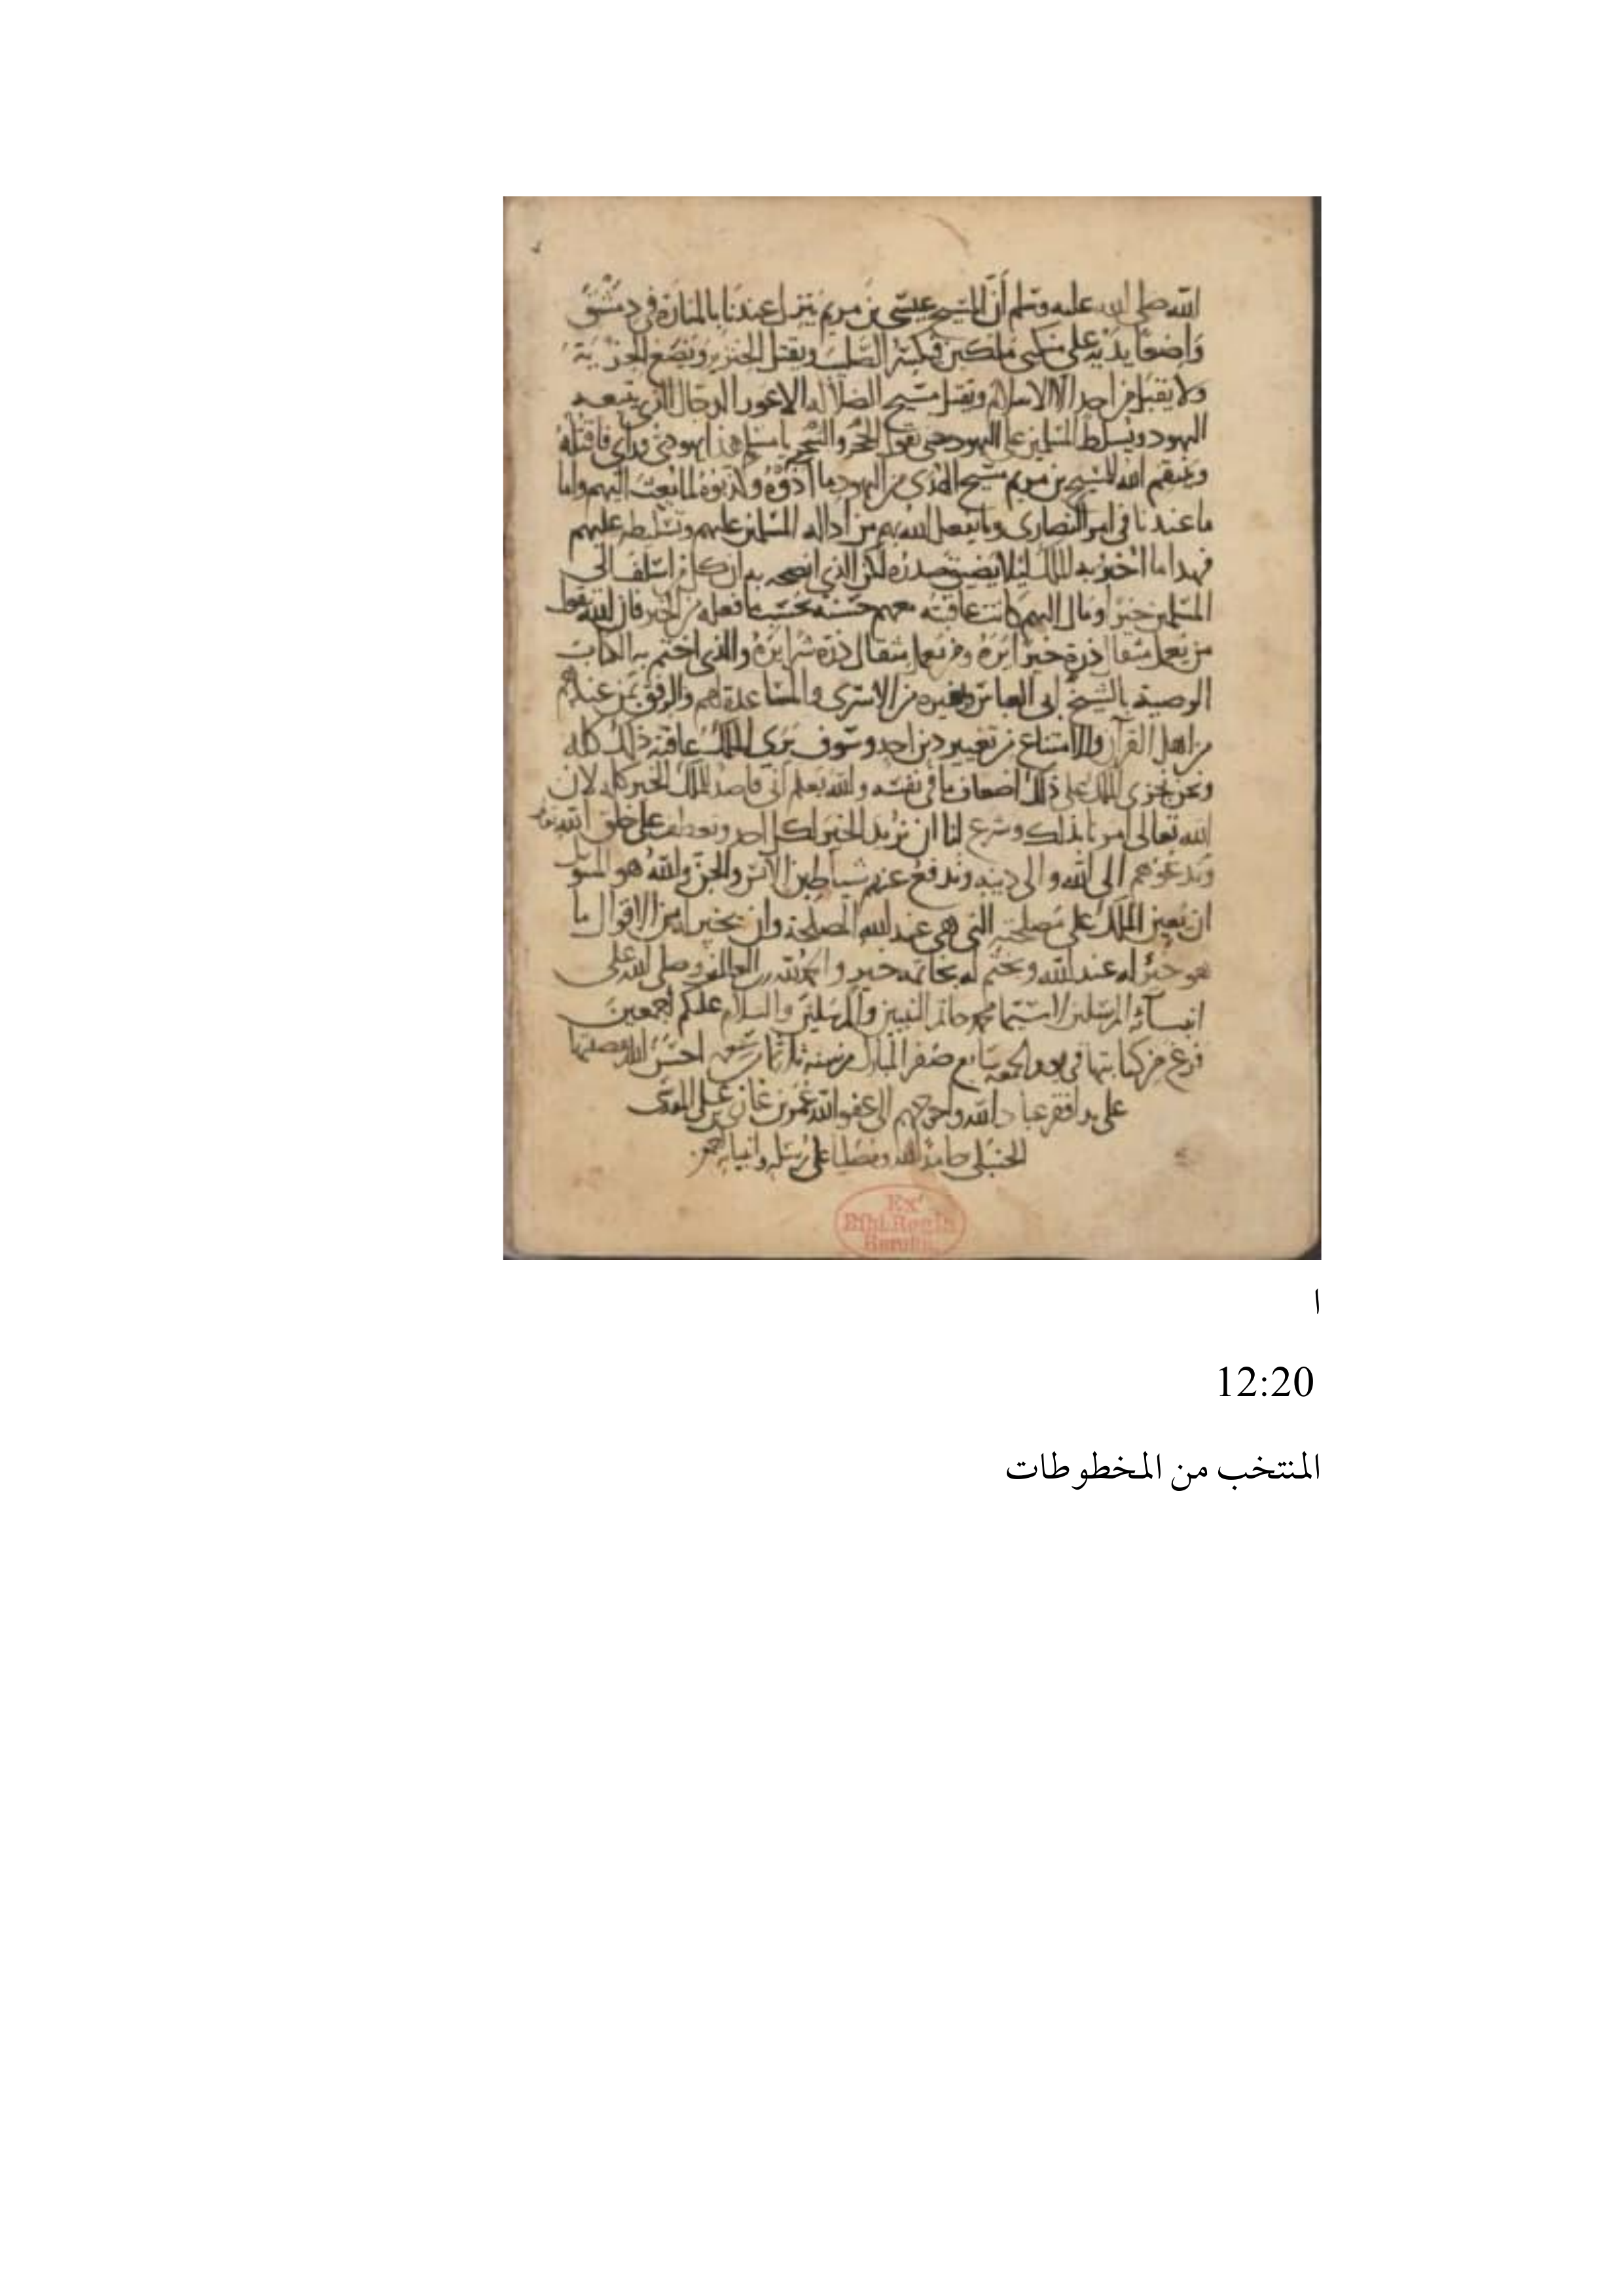 الله صلى الله عليه وسلم أن المسيح عيسى بن مريم ينزل عندنا بالمنارة في دمشق
واضعا يديه على منكبي ملكين فيكسر الصليب ويقتل الخنزير ويضع الجزية
ولا يقبل من احد الا الاسلام ويقتل مسيح الضلالة الاعور الدجال الذي يتبعه
اليهود ويسلط المسلمين على اليهود حتى يقول الحجر والشجر يا مسلم هذا يهودي وراي فاقتله
وينتقم الله للمسيح بن مريم مسيح الهدى من اليهود ما آذوه وكذبوه لما بعث اليهم واما
ما عندنا في امر النصارى وما يفعل الله بهم من ادالة المسلمين عليهم وتسليطه عليهم
فهذا ما اخبر به الملك ليلا يضيق صدره لكن الذي انصحه به ان كل من اسلف الى
المسلمين خيرا ومال اليهم كانت عاقبته معهم حسنة بحسب ما فعله من الخير فان الله يقول
من يعمل مثقال ذرة خيرا يره ومن يعمل مثقال ذرة شرا يره والذي اختم به الكتاب
الوصية بالشيخ ابي العباس وبغيره من الاسرى والمساعدة لهم والرفق بمن عندهم
من اهل القرآن والامتناع من تغيير دين احد وسوف يرى الملك عاقبة ذلك كله
ونحن نجزي الملك على ذلك اضعاف ما في نفسه والله يعلم اني قاصد للملك الخير كله لان
الله تعالى امرنا بذلك وشرع لنا ان نريد الخير لكل احد ونعطف على خلق الله
وندعوهم الى الله والى دينه وندفع عنهم شياطين الانس والجن والله هو المسول
ان يعين الملك على مصلحته التي هي عند الله المصلحة وان يخير له من الاقوال ما
هو خير له عند الله ويختم له بخاتمة خير والحمد لله رب العالمين وصلى الله على
انبيائه المرسلين لا سيما محمد خاتم النبيين والمرسلين والسلام عليكم اجمعين
فرغ من كتابتها في يوم الجمعة سابع صفر المبارك من سنة احسن الله
على يد افقر عباد الله واحوجهم الى عفو الله عمر بن غازي بن علي
الحنبلي حامدا لله ومصليا على رسله وانبيائه
Ex
Bibl. Regia
Berolin.
ا
12:20
المنتخب من المخطوطات